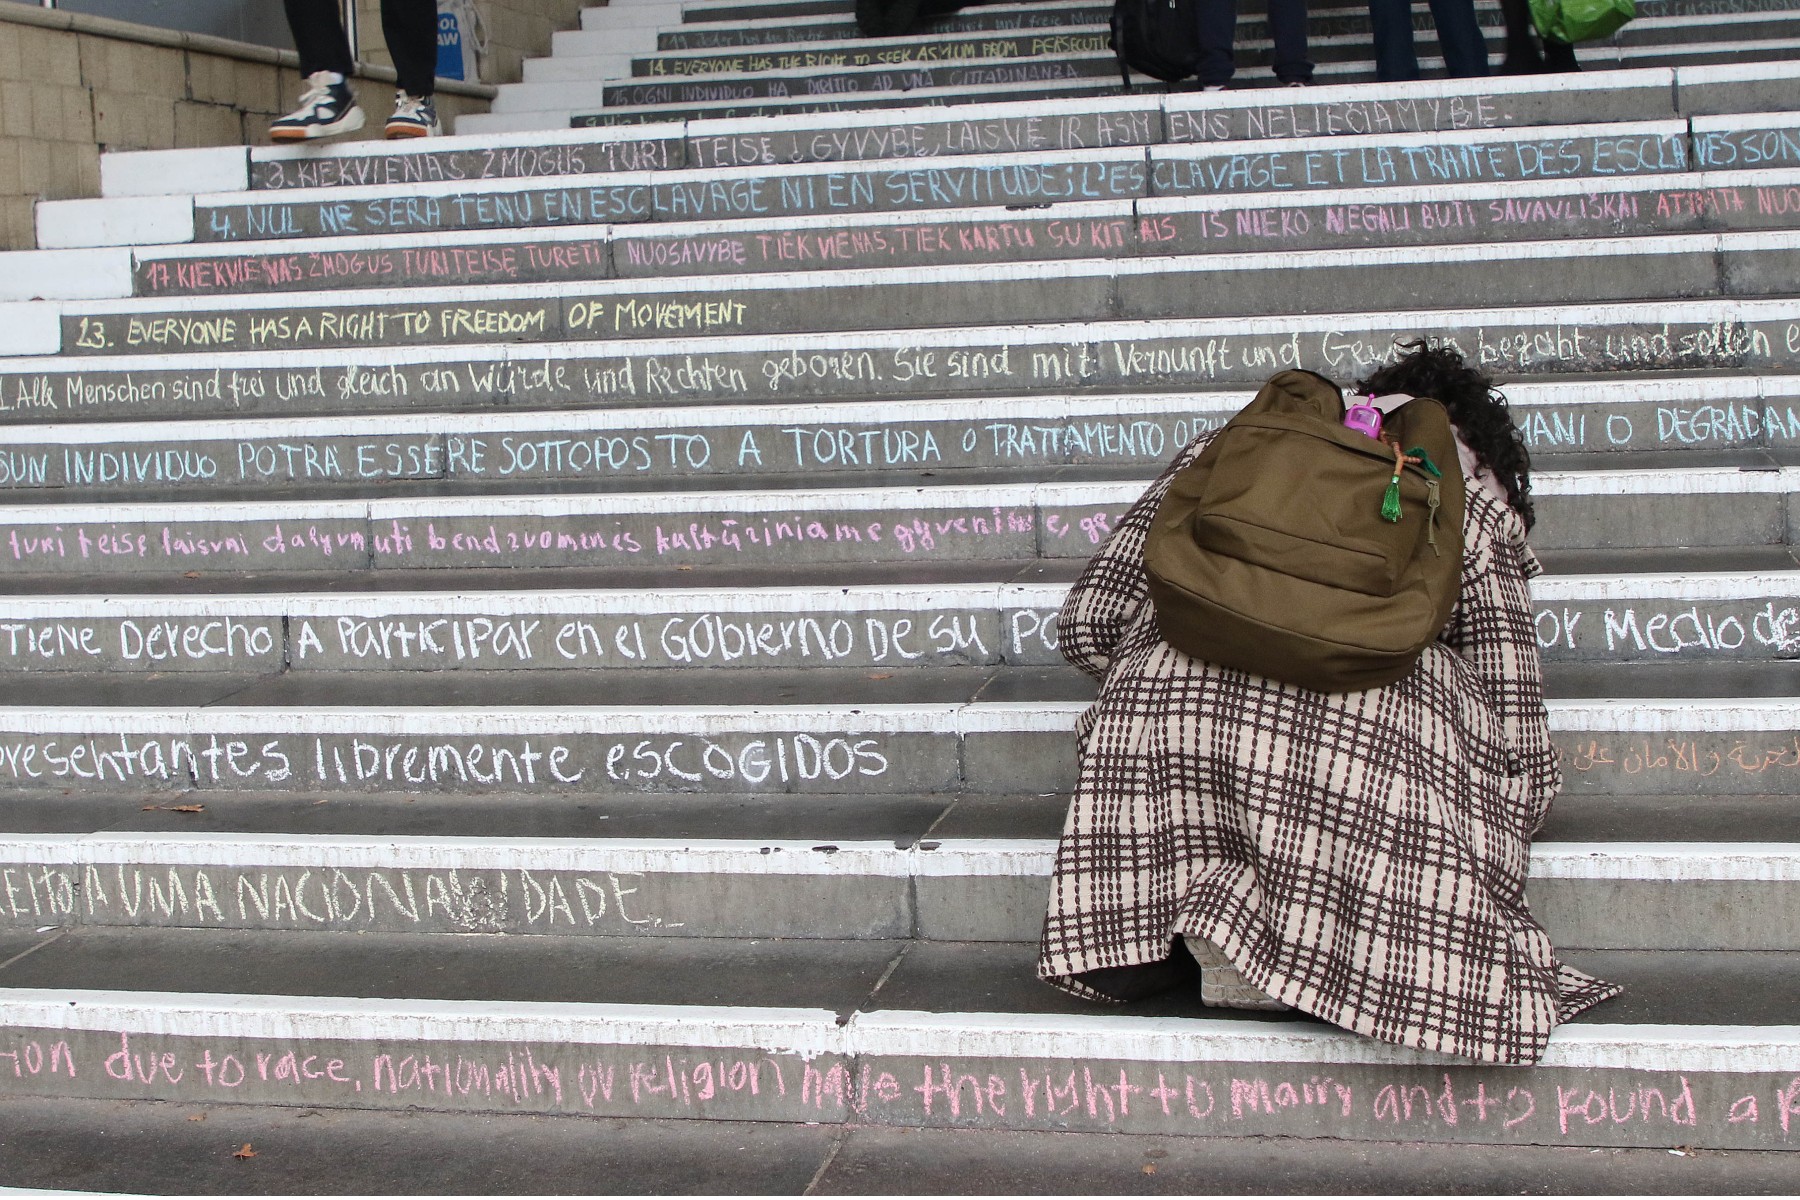 14. EVERYONE HAS THE RIGHT TO SEEK ASYLUM FROM PERSECUTIO
15 OGNI INDIVIDUO HA DIRITTO AD UNA CITTADINANZA
3. KIEKVIENAS ŽMOGUS TURI TEISĘ Į GYVYBĘ, LAISVĘ IR ASMENS NELIEČIAMYBĘ.
4. NUL NE SERA TENU EN ESCLAVAGE NI EN SERVITUDE; L'ESCLAVAGE ET LA TRAITE DES ESCLAVES SON
17 KIEKVIENAS ŽMOGUS TURI TEISĘ TURĖTI NUOSAVYBĘ TIEK VIENAS, TIEK KARTU SU KITAIS IŠ NIEKO NEGALI BŪTI SAVAVLIŠKAI ATIMTA NUO
13. EVERYONE HAS A RIGHT TO FREEDOM OF MOVEMENT
1. Alle Menschen sind frei und gleich an Würde und Rechten geboren. Sie sind mit Vernunft und Gewissen begabt und sollen e
SUN INDIVIDUO POTRÀ ESSERE SOTTOPOSTO A TORTURA O TRATTAMENTO O PU MANI O DEGRADAN
turi teisę laisvai dalyvauti bendruomenės kultūriniame gyvenime, gė
TIENE DERECHO A PARTICIPAR en el GOBIERNO DE SU PO OR MEDIO de
presentantes libremente escogidos
REITO A UMA NACIONALIDADE
الحرية و الأمان على
tion due to race, nationality or religion have the right to marry and to found a f